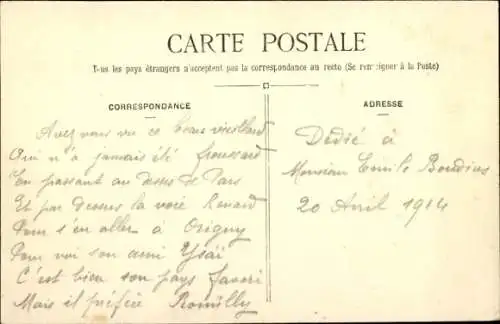 CARTE POSTALE
Tous les pays étrangers n'acceptent pas la correspondance au recto (Se renseigner à la Poste)
CORRESPONDANCE
Avez vous vu ce beau vieillard
Qui n'a jamais été froussard
En passant au dessus de Pars
Et par dessus la voie Renard
Pour s'en aller à Origny
Pour voir son ami Ysaï
C'est bien son pays favori
Mais il préfère Romilly
ADRESSE
Dedié à
Monsieur Emile
20 Avril 1914